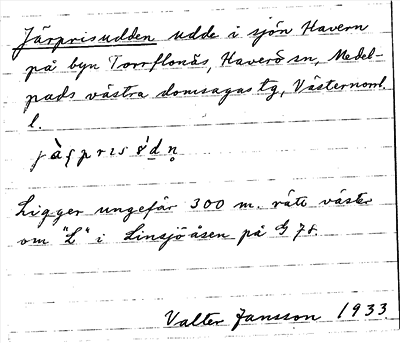 Järprisudden udde i sjön Havern
på byn Torrflonäs, Haverö sn, Medel-
pads västra domsagas tg, Västernorrl.
l.
Ligger ungefär 300 m. rätt väster
om "L" i Linsjöåsen på G 78.
Valter Jansson 1933.